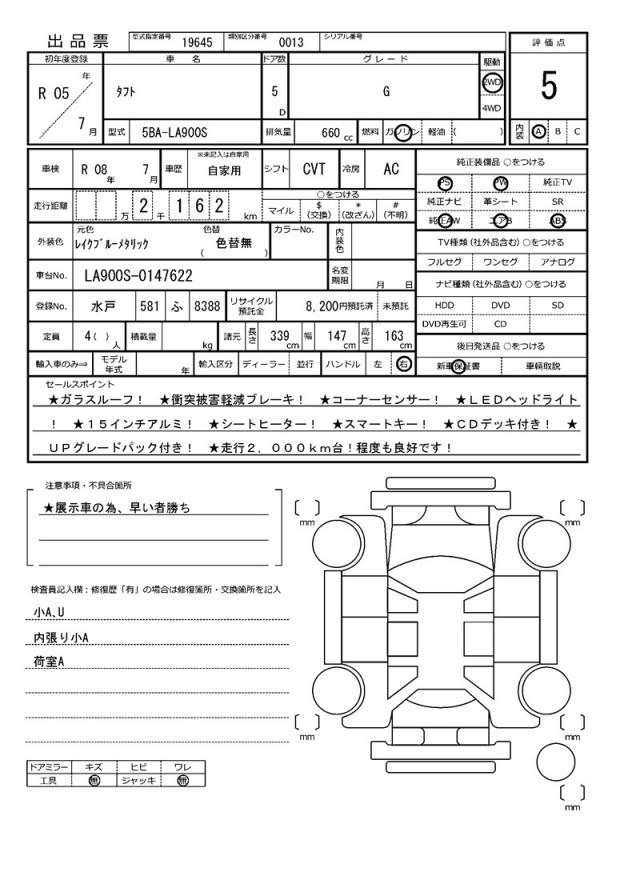 出品票
型式指定番号 19645 類別区分番号 0013 シリアル番号
初年度登録 車名 ドア数 グレード 駆動 評価点
R 05 年 7 月 タフト 5 D G 2WD 4WD 5
型式 5BA-LA900S 排気量 660 cc 燃料 ガソリン 軽油 ( ) 内装 A B C
車検 R 08 年 7 月 車歴 ※未記入は自家用 自家用 シフト CVT 冷房 AC
純正装備品 ○をつける
PS PW 純正TV
純正ナビ 革シート SR
純正AW エアB ABS
走行距離 万 2 千 1 6 2 km
○をつける
マイル $(交換) *(改ざん) #(不明)
外装色 元色 レイクブルーメタリック 色替 ( 色替無 ) カラーNo. 内装色
TV種類 (社外品含む) ○をつける
フルセグ ワンセグ アナログ
車台No. LA900S-0147622 名変期限 月 日
ナビ種類 (社外品含む) ○をつける
HDD DVD SD
DVD再生可 CD
登録No. 水戸 581 ふ 8388 リサイクル預託金 8,200円預託済 未預託
定員 4( ) 人 積載量 kg 諸元 長さ 339 cm 幅 147 cm 高さ 163 cm
後日発送品 ○をつける
新車保証書 車輌取説
輸入車のみ⇒ モデル年式 年 輸入区分 ディーラー 並行 ハンドル 左 右
セールスポイント
★ガラスルーフ! ★衝突被害軽減ブレーキ! ★コーナーセンサー! ★LEDヘッドライト
! ★15インチアルミ! ★シートヒーター! ★スマートキー! ★CDデッキ付き! ★
UPグレードパック付き! ★走行2,000km台!程度も良好です!
注意事項・不具合箇所
★展示車の為、早い者勝ち
検査員記入欄:修復歴「有」の場合は修復箇所・交換箇所を記入
小A、U
内張り小A
荷室A
ドアミラー キズ ヒビ ワレ
工具 無 ジャッキ 無
mm
mm
mm
mm
mm